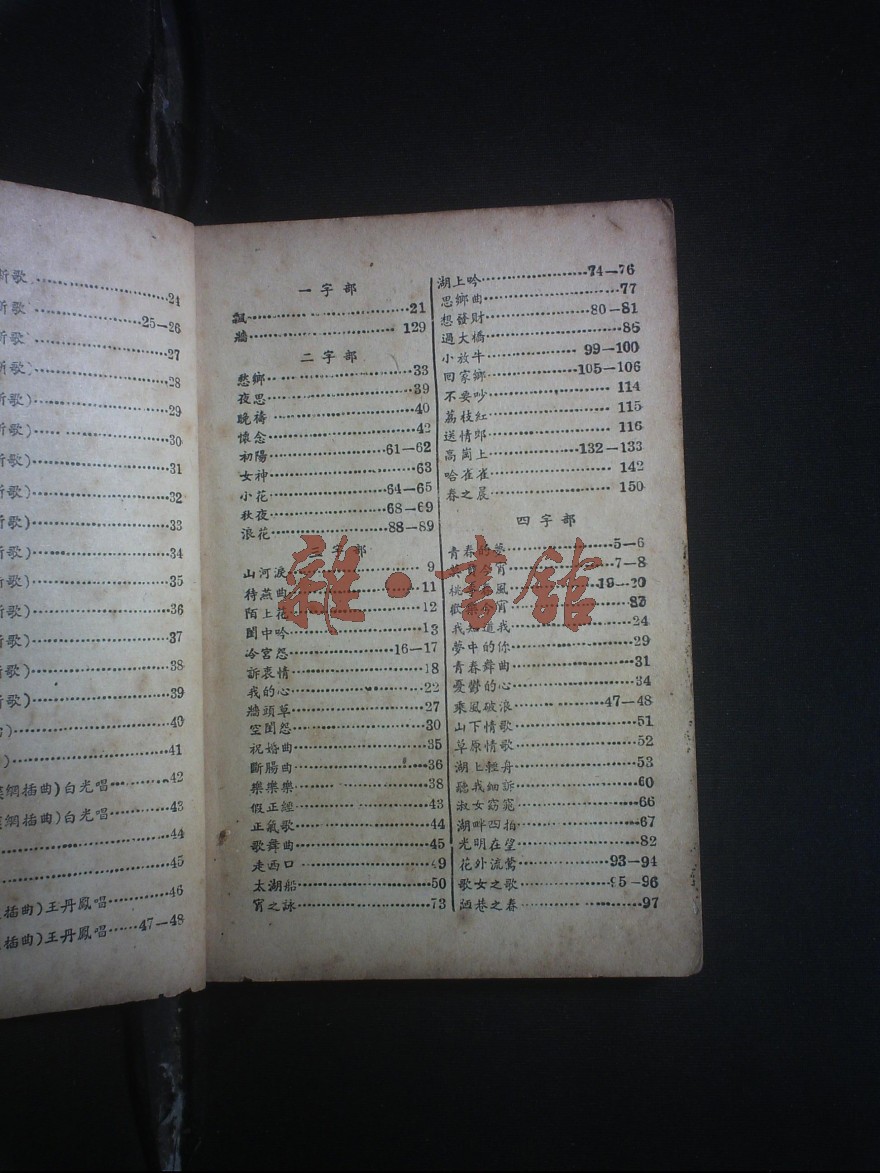 新歌………24
新歌………25—26
新歌………27
新歌)………28
新歌)………29
新歌)………30
新歌)………31
新歌)………32
新歌)………33
新歌)………34
新歌)………35
新歌)………36
新歌)………37
新歌)………38
新歌)………39
)………40
)………41
網插曲)白光唱………42
網插曲)白光唱………43
………44
………45
插曲)王丹鳳唱………46
插曲)王丹鳳唱………47—48
一字部
飄………21
牆………129
二字部
愁鄉………33
夜思………39
晚禱………40
懷念………42
初陽………61—62
女神………63
小花………64—65
秋夜………68—69
浪花………88—89
三字部
山河淚………9
待燕曲………11
陌上花………12
閨中吟………13
冷宮怨………16—17
訴衷情………18
我的心………22
牆頭草………27
空閨怨………30
祝婚曲………35
斷腸曲………36
樂樂樂………38
假正經………43
正氣歌………44
歌舞曲………45
走西口………49
太湖船………50
宵之詠………73
湖上吟………74—76
思鄉曲………77
想發財………80—81
過大橋………86
小放牛………99—100
回家鄉………105—106
不要吵………114
荔枝紅………115
送情郎………116
高崗上………132—133
哈雀雀………142
春之晨………150
四字部
青春的夢………5—6
今宵………7—8
桃李春風………19—20
歡樂今宵………87
我知道我………24
夢中的你………29
青春舞曲………31
憂鬱的心………34
乘風破浪………47—48
山下情歌………51
草原情歌………52
湖上輕舟………53
聽我細訴………60
淑女窈窕………66
湖畔四拍………67
光明在望………82
花外流鶯………93—94
歌女之歌………95—96
陋巷之春………97
雜·書館